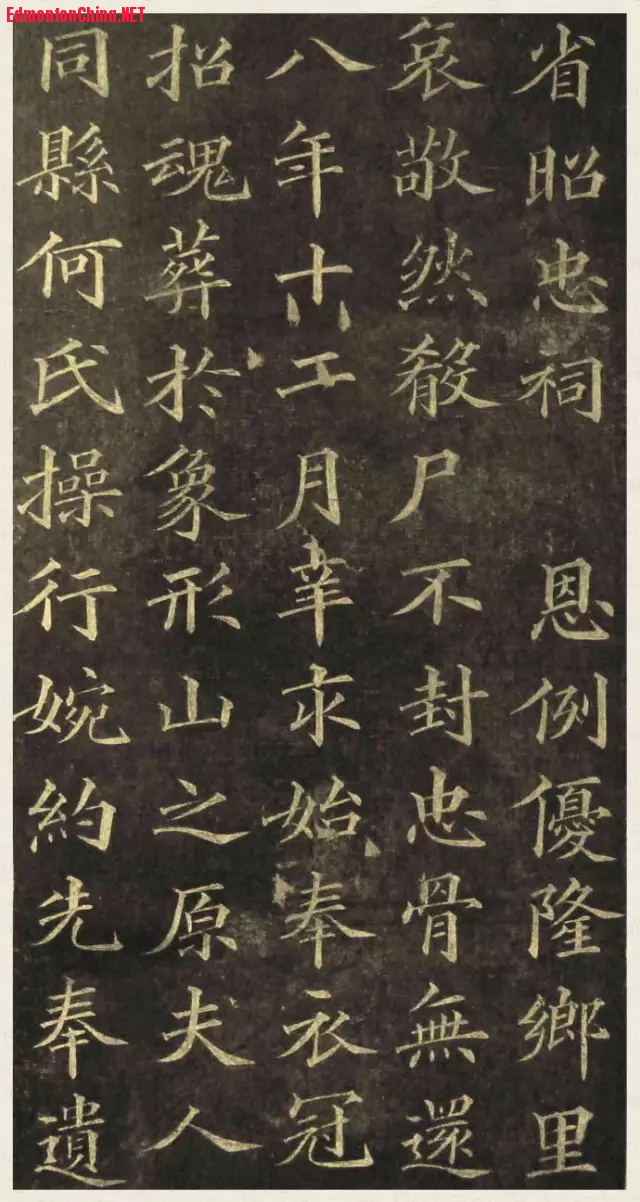 EdmontonChina.NET
省昭忠祠 恩例優隆鄉里
哀敬然殽尸不封忠骨無還
八年十工月辛始奉衣冠
招魂葬於象形山之原夫人
同縣何氏操行婉約先奉遺